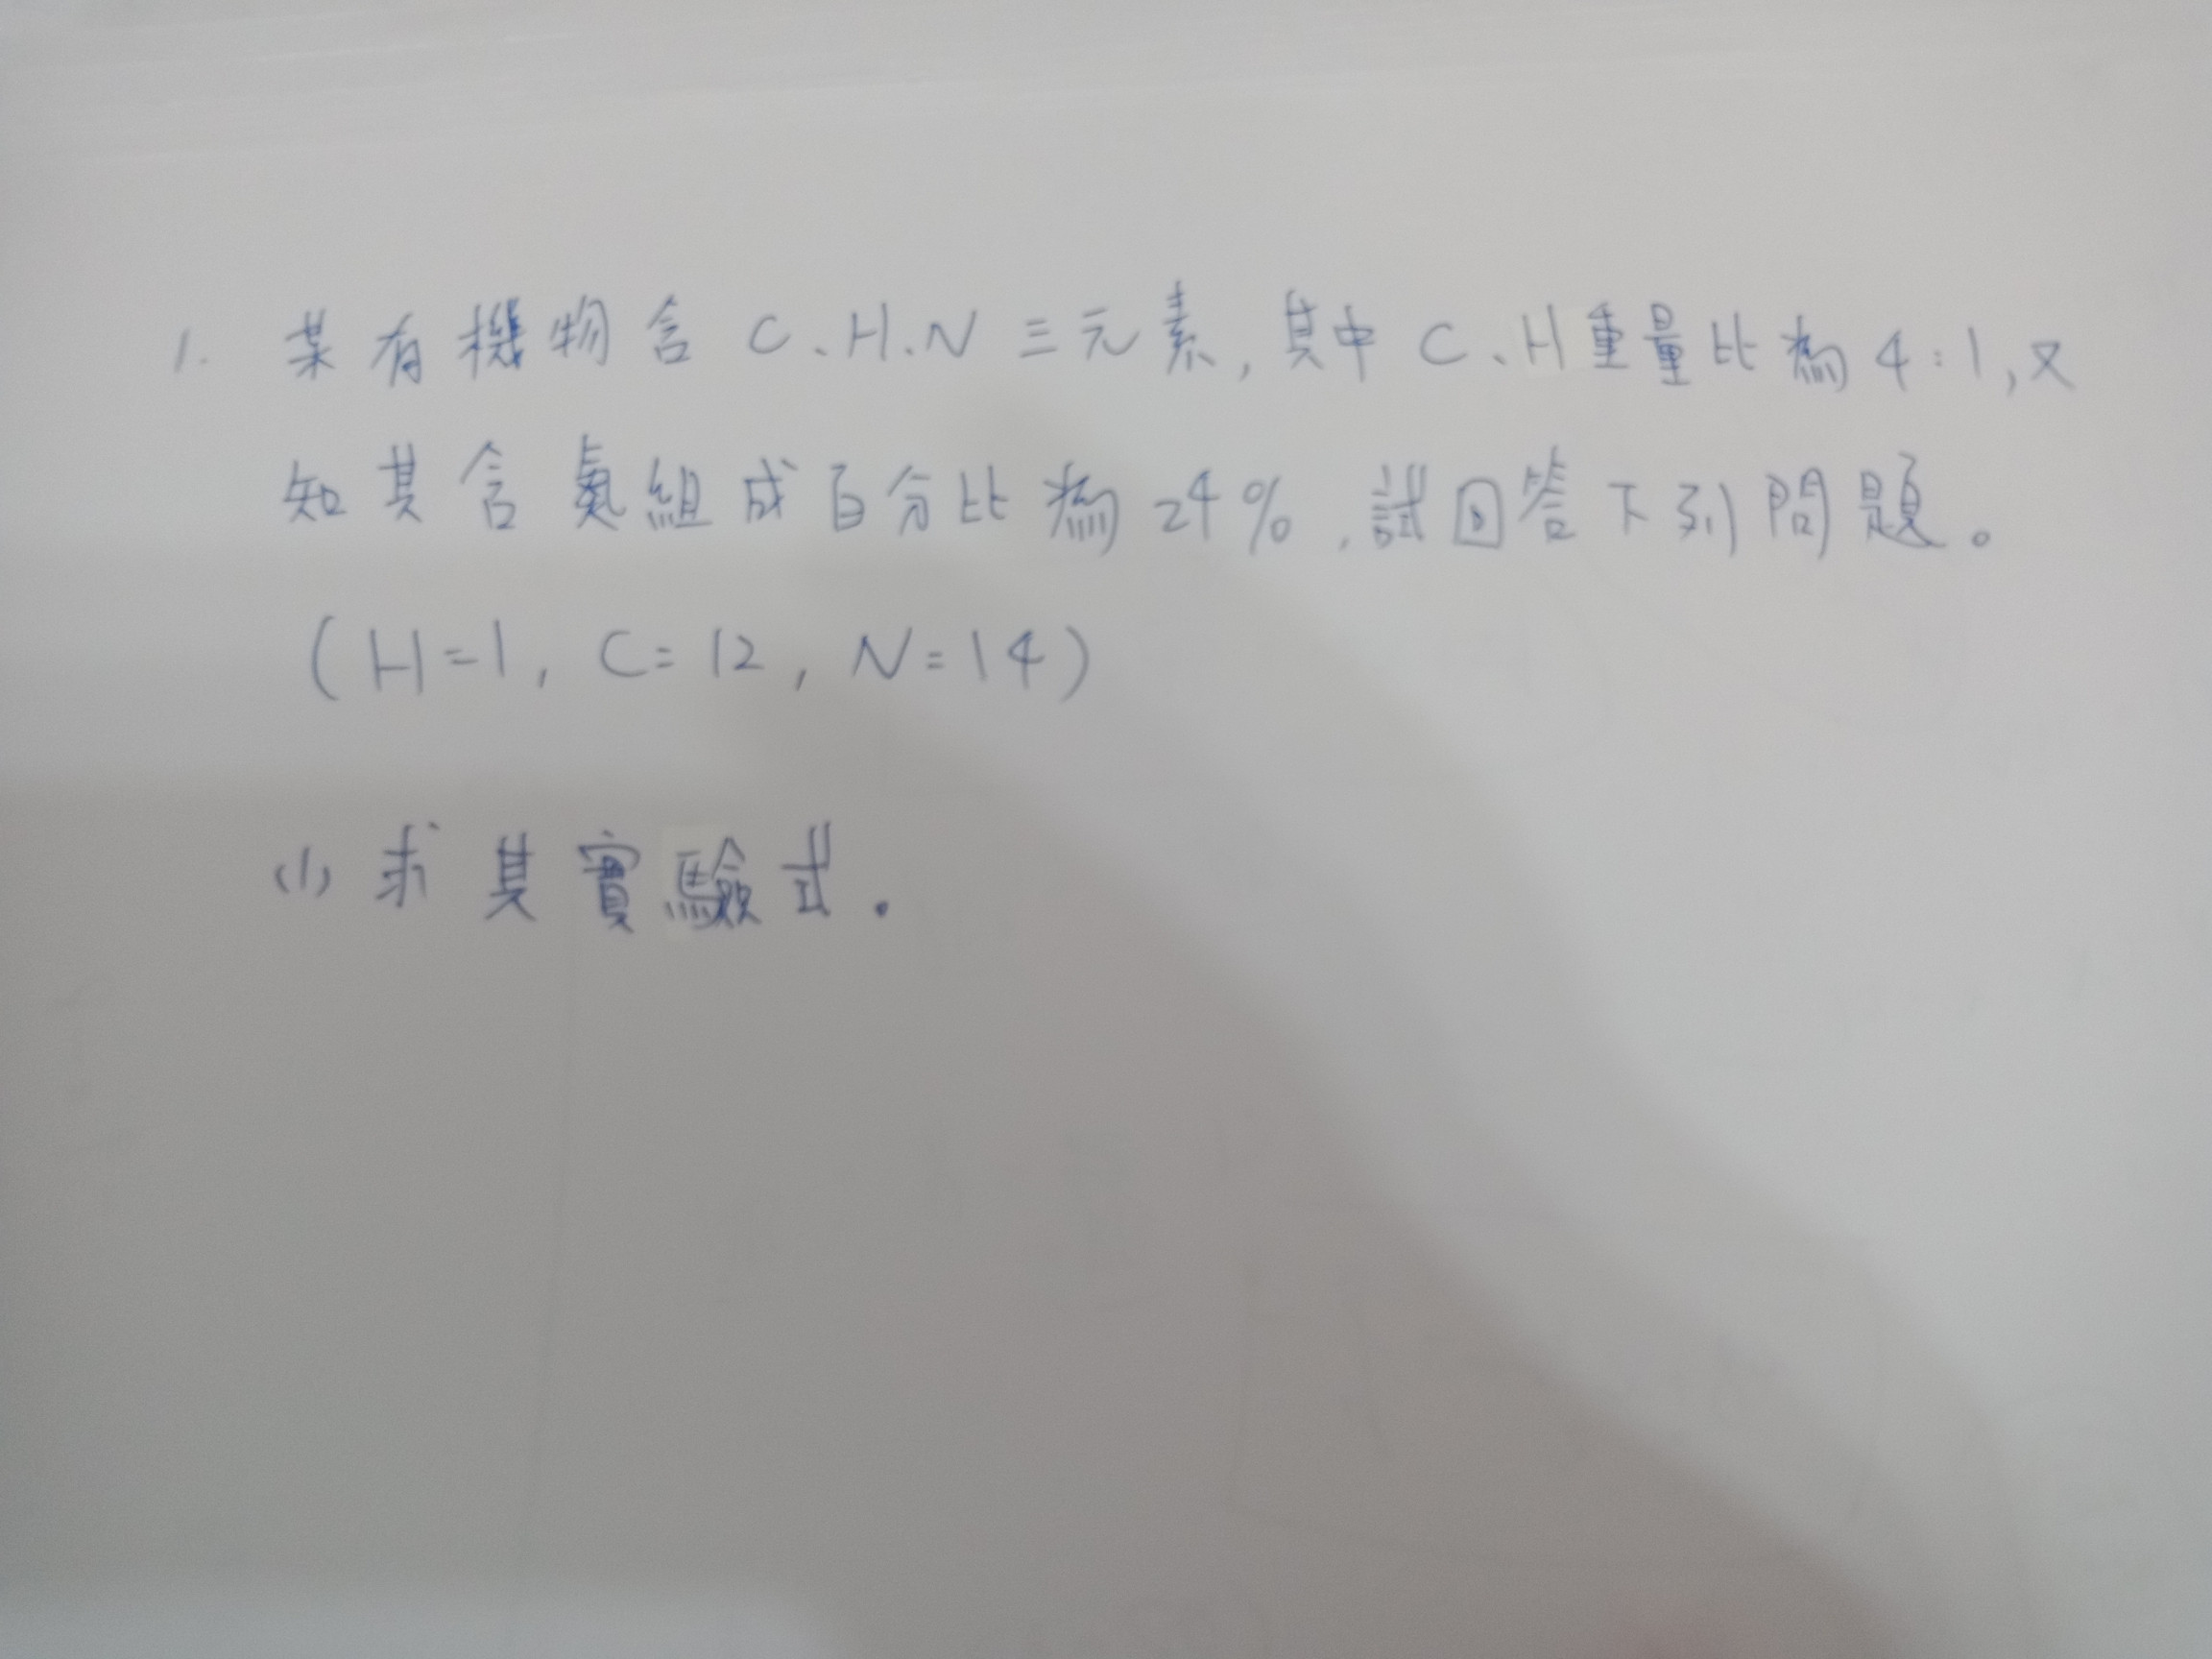 1. 某有機物含 C、H、N 三元素, 其中 C、H重量比為 4:1, 又
知其含氮組成百分比為 24%, 試回答下列問題。
(H=1, C=12, N=14)
(1) 求其實驗式。